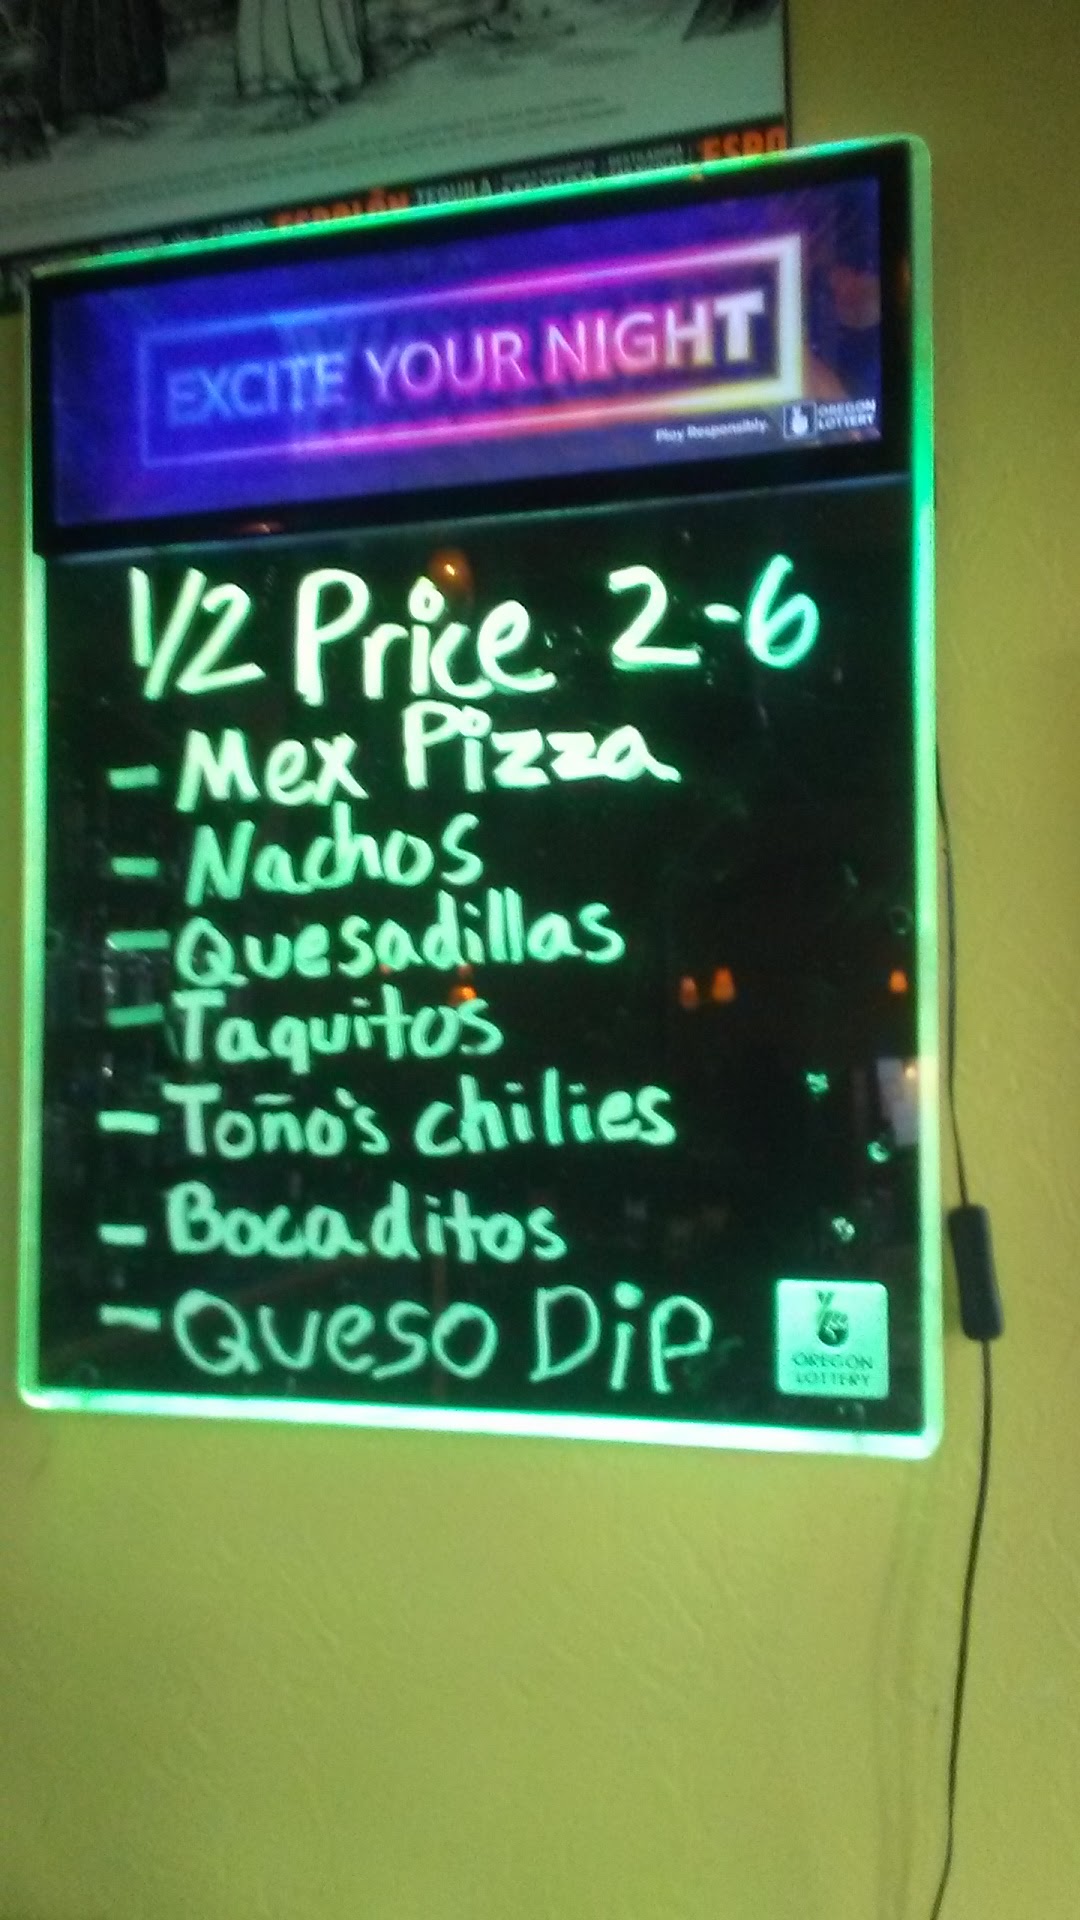 ESPOLÓN TEQUILA ESPO
EXCITE YOUR NIGHT
Play Responsibly.
OREGON
LOTTERY
1/2 Price 2-6
- Mex Pizza
- Nachos
- Quesadillas
- Taquitos
- Toño's chilies
- Bocaditos
- Queso Dip
OREGON
LOTTERY